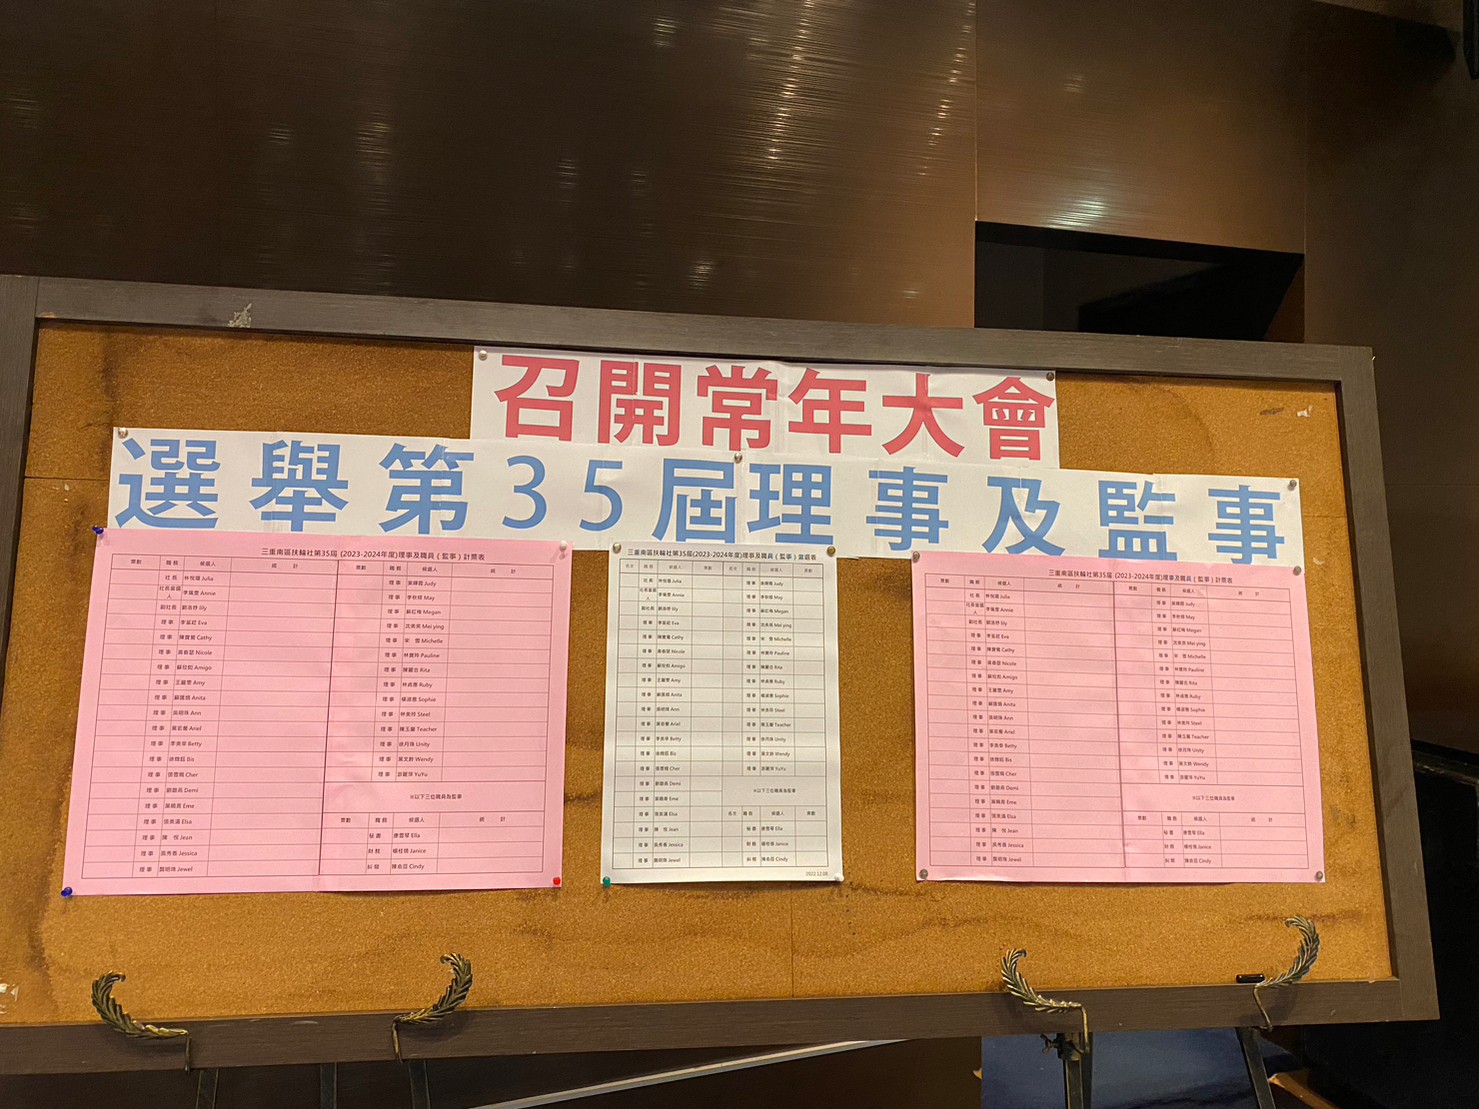 召開常年大會
選舉第35屆理事及監事
三重南區扶輪社第35屆 (2023-2024年度)理事及職員（監事）計票表
票數 職務 候選人 統 計 票數 職務 候選人 統 計
社長 Julia 理事 Judy
社長當選人 Annie 理事 李秋穆 May
副社長 lily 理事 蘇紅梅 Megan
理事 Eva 理事 Mei ying
理事 陳寶鶯 Cathy 理事 Michelle
理事 Nicole 理事 林寶玲 Pauline
理事 Amigo 理事 陳麗合 Rita
理事 王麗雯 Amy 理事 林貞惠 Ruby
理事 Anita 理事 楊淑惠 Sophie
理事 吳明珠 Ann 理事 林美玲 Steel
理事 Ariel 理事 陳玉華 Teacher
理事 Betty 理事 徐月珠 Unity
理事 Bis 理事 葉文齡 Wendy
理事 張雪娥 Cher 理事 游麗萍 YuYu
理事 Demi
理事 Eme ※以下三位職員為監事
理事 張美滿 Elsa 票數 職務 候選人 統 計
理事 陳 悅 Jean 秘書 唐雪琴 Ella
理事 吳秀香 Jessica 財務 楊桂銹 Janice
理事 顏明珠 Jewel 糾察 陳俞亘 Cindy
三重南區扶輪社第35屆(2023-2024年度)理事及職員（監事）當選表
名次 職務 候選人 票數 名次 職務 候選人 票數
社長 Julia 理事 Judy
社長當選人 Annie 理事 李秋穆 May
副社長 lily 理事 蘇紅梅 Megan
理事 Eva 理事 Mei ying
理事 陳寶鶯 Cathy 理事 Michelle
理事 Nicole 理事 林寶玲 Pauline
理事 Amigo 理事 陳麗合 Rita
理事 王麗雯 Amy 理事 林貞惠 Ruby
理事 Anita 理事 楊淑惠 Sophie
理事 吳明珠 Ann 理事 林美玲 Steel
理事 Ariel 理事 陳玉華 Teacher
理事 Betty 理事 徐月珠 Unity
理事 Bis 理事 葉文齡 Wendy
理事 張雪娥 Cher 理事 游麗萍 YuYu
理事 Demi
理事 Eme ※以下三位職員為監事
理事 張美滿 Elsa 名次 職務 候選人 票數
理事 陳 悅 Jean 秘書 唐雪琴 Ella
理事 吳秀香 Jessica 財務 楊桂銹 Janice
理事 顏明珠 Jewel 糾察 陳俞亘 Cindy
2022.12.08
三重南區扶輪社第35屆 (2023-2024年度)理事及職員（監事）計票表
票數 職務 候選人 統 計 票數 職務 候選人 統 計
社長 Julia 理事 Judy
社長當選人 Annie 理事 李秋穆 May
副社長 lily 理事 蘇紅梅 Megan
理事 Eva 理事 Mei ying
理事 陳寶鶯 Cathy 理事 Michelle
理事 Nicole 理事 林寶玲 Pauline
理事 Amigo 理事 陳麗合 Rita
理事 王麗雯 Amy 理事 林貞惠 Ruby
理事 Anita 理事 楊淑惠 Sophie
理事 吳明珠 Ann 理事 林美玲 Steel
理事 Ariel 理事 陳玉華 Teacher
理事 Betty 理事 徐月珠 Unity
理事 Bis 理事 葉文齡 Wendy
理事 張雪娥 Cher 理事 游麗萍 YuYu
理事 Demi
理事 Eme ※以下三位職員為監事
理事 張美滿 Elsa 票數 職務 候選人 統 計
理事 陳 悅 Jean 秘書 唐雪琴 Ella
理事 吳秀香 Jessica 財務 楊桂銹 Janice
理事 顏明珠 Jewel 糾察 陳俞亘 Cindy